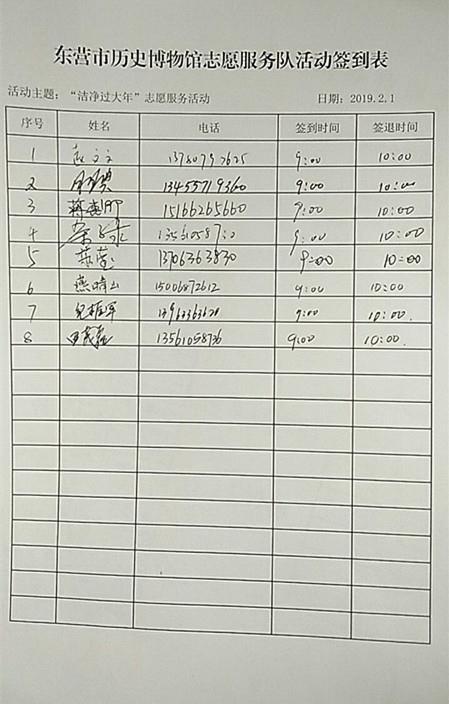 东营市历史博物馆志愿服务队活动签到表
活动主题：“洁净过大年”志愿服务活动 日期：2019.2.1
序号 姓名 电话 签到时间 签退时间
1 9:00 10:00
2 13455719360 9:00 10:00
3 15166265660 9:00 10:00
4 9:00 10:00
5 13706363830 9:00 10:00
6 燕晴山 15006872612 9:00 10:00
7 9:00 10:00
8 13561058736 9:00 10:00